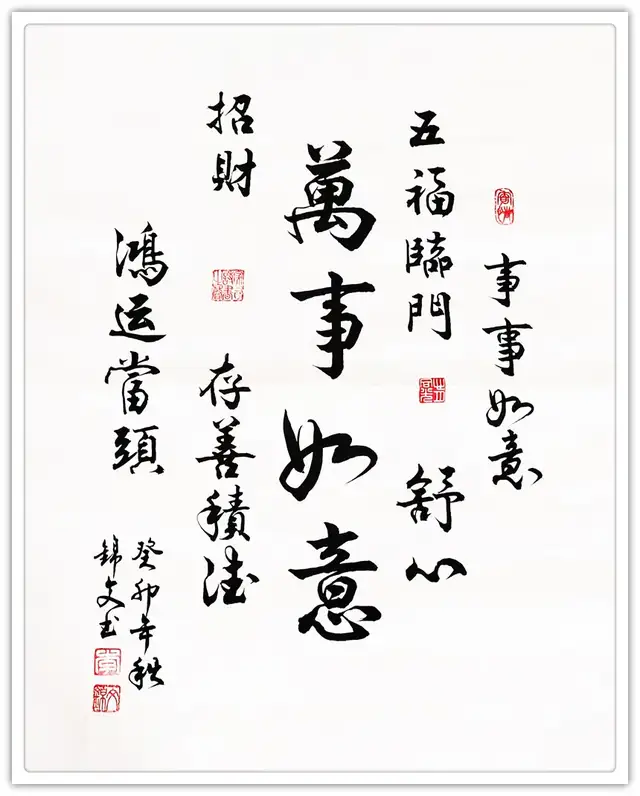 事事如意
五福臨門
舒心
萬事如意
招財
存善積德
鴻运當頭
癸卯年秋
錦文书